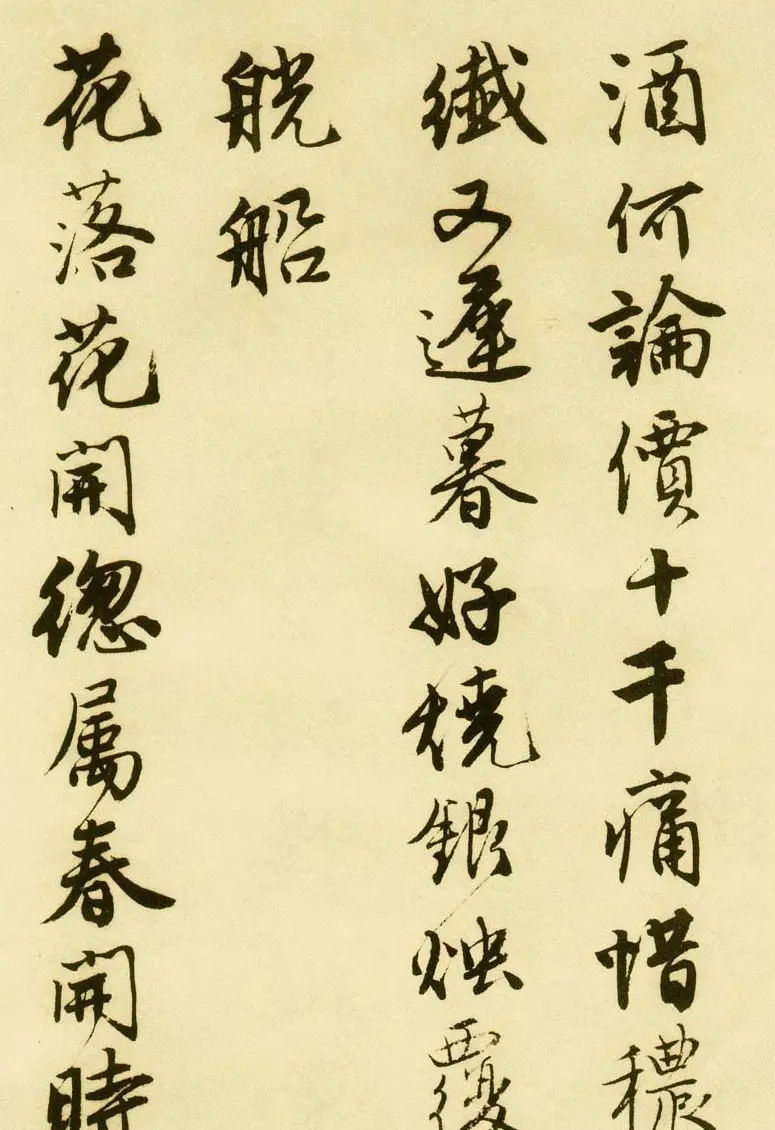 酒何論價十千痛惜穠
纖又遲暮好燒銀燭覆
觥船
花落花開總屬春開時